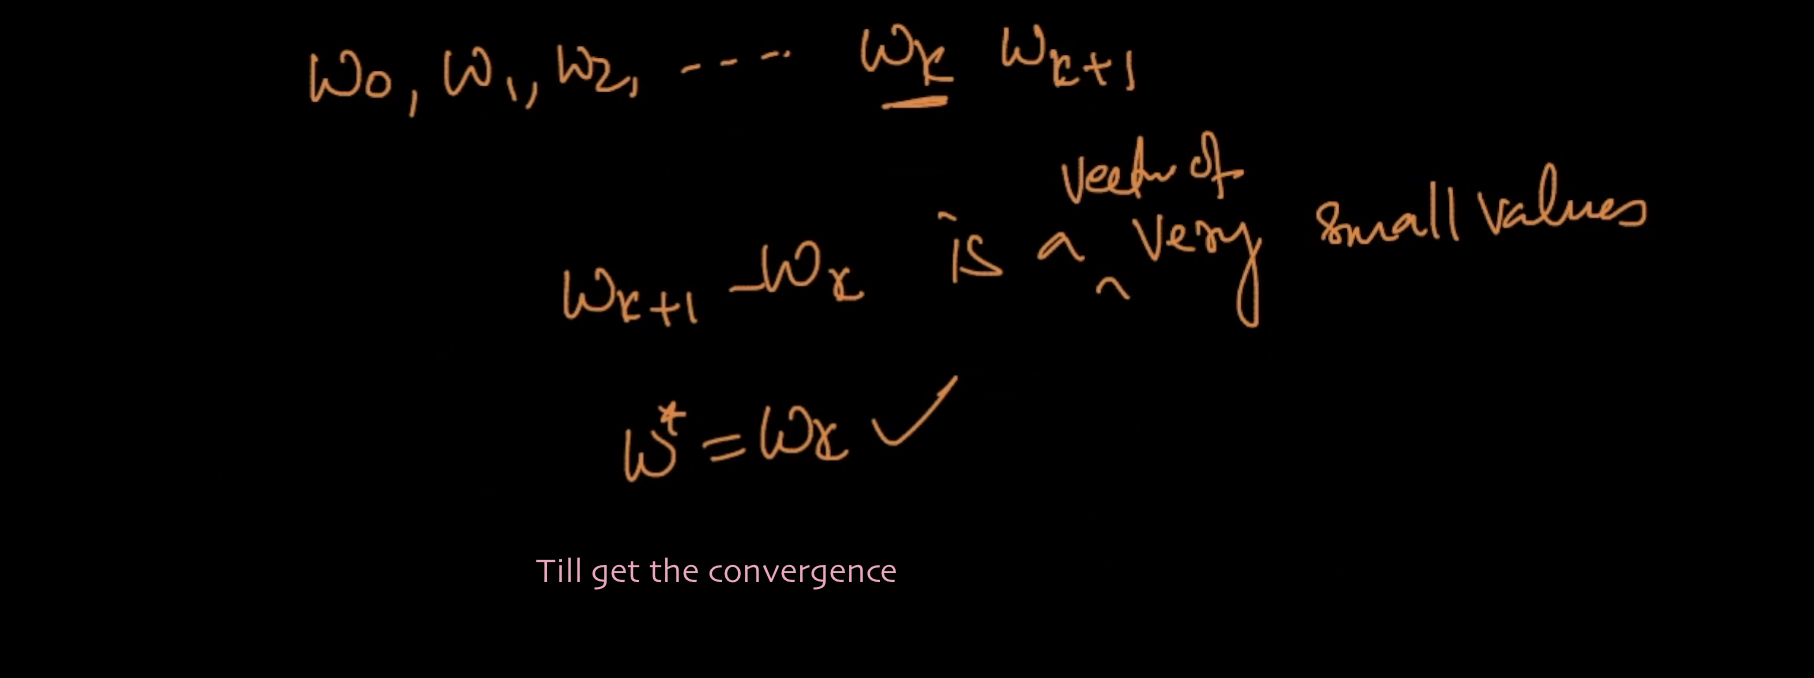 w₀, w₁, w₂, ---- w_k w_k+1
w_k+1 - w_k is a vector of very small values
w* = w_k ✓
Till get the convergence